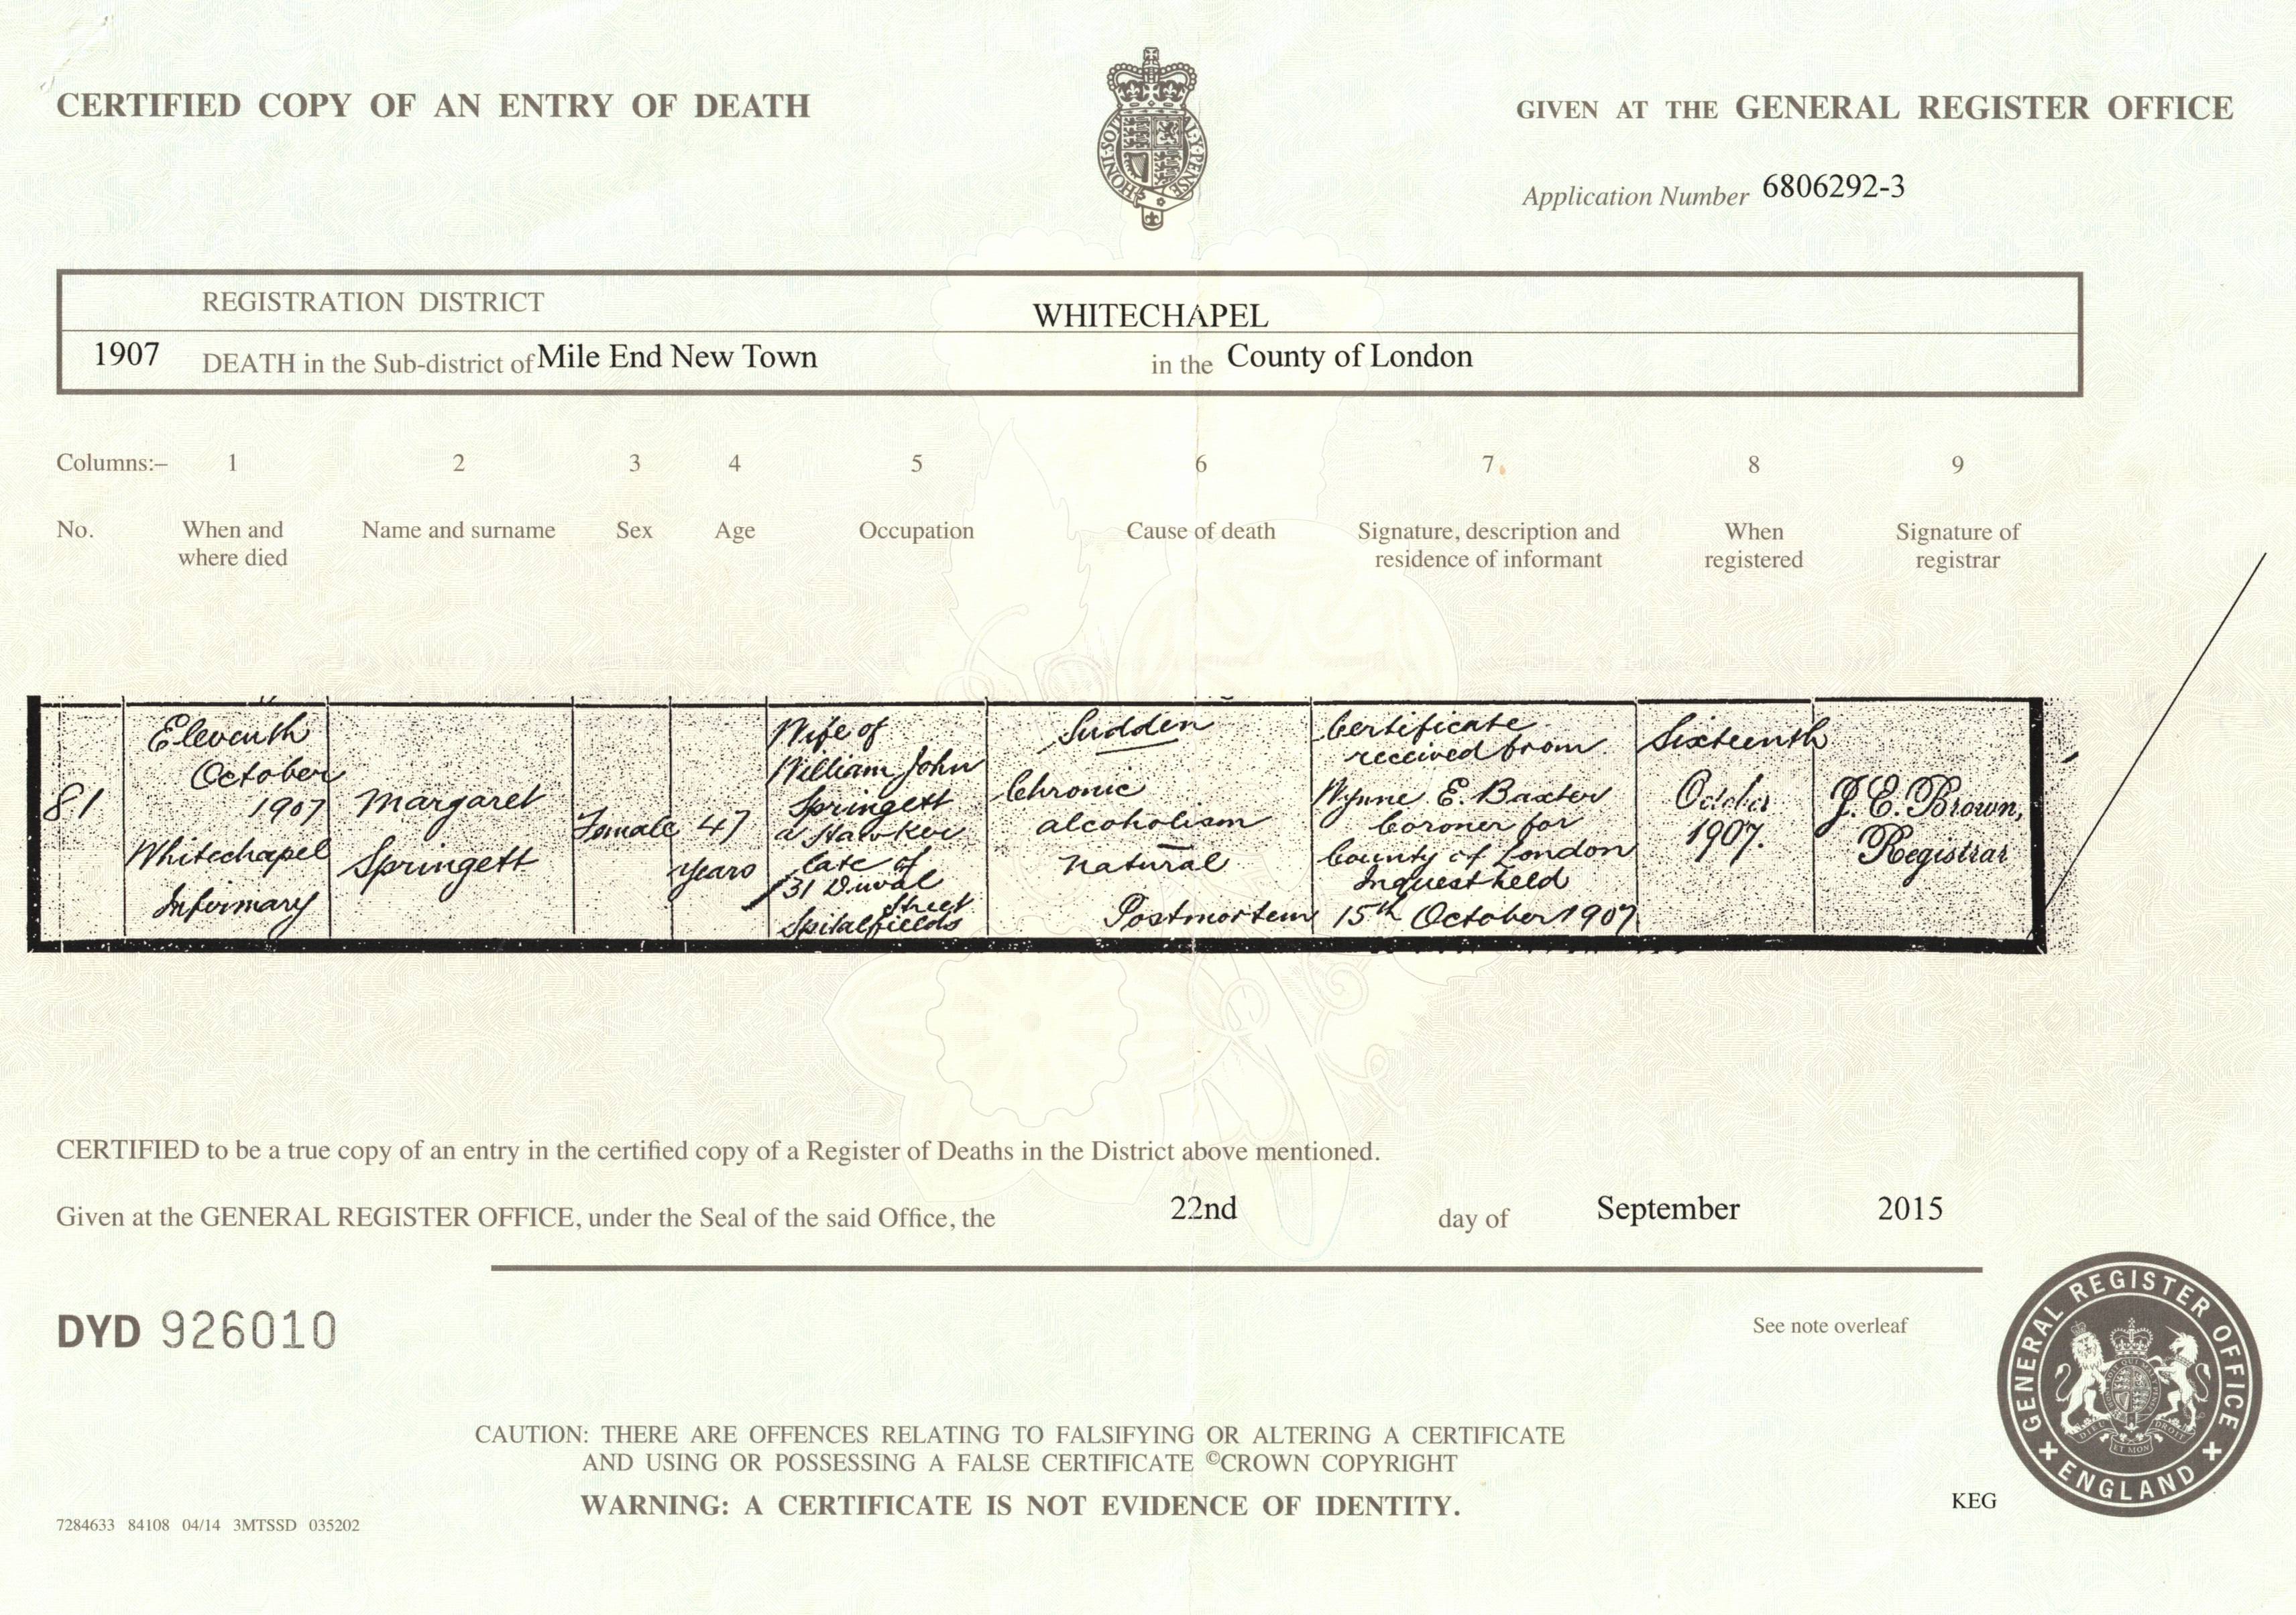 CERTIFIED COPY OF AN ENTRY OF DEATH
HONI·SOIT·QUI·MAL·Y·PENSE
GIVEN AT THE GENERAL REGISTER OFFICE
Application Number 6806292-3
REGISTRATION DISTRICT WHITECHAPEL
1907 DEATH in the Sub-district of Mile End New Town in the County of London
Columns:– 1 2 3 4 5 6 7 8 9
No.
When and
where died
Name and surname
Sex
Age
Occupation
Cause of death
Signature, description and
residence of informant
When
registered
Signature of
registrar
81
Eleventh
October
1907
Whitechapel
Infirmary
Margaret
Springett
Female
47
years
Wife of
William John
Springett
a Hawker
late of
31 Duval
Street
Spitalfields
Sudden
Chronic
alcoholism
Natural
Postmortem
Certificate
received from
Wynne E. Baxter
Coroner for
County of London
Inquest held
15th October 1907
Sixteenth
October
1907.
J.E. Brown,
Registrar
CERTIFIED to be a true copy of an entry in the certified copy of a Register of Deaths in the District above mentioned.
Given at the GENERAL REGISTER OFFICE, under the Seal of the said Office, the 22nd day of September 2015
DYD 926010
See note overleaf
GENERAL REGISTER OFFICE
ENGLAND
DIEU ET MON DROIT
CAUTION: THERE ARE OFFENCES RELATING TO FALSIFYING OR ALTERING A CERTIFICATE
AND USING OR POSSESSING A FALSE CERTIFICATE ©CROWN COPYRIGHT
WARNING: A CERTIFICATE IS NOT EVIDENCE OF IDENTITY.
KEG
7284633 84108 04/14 3MTSSD 035202